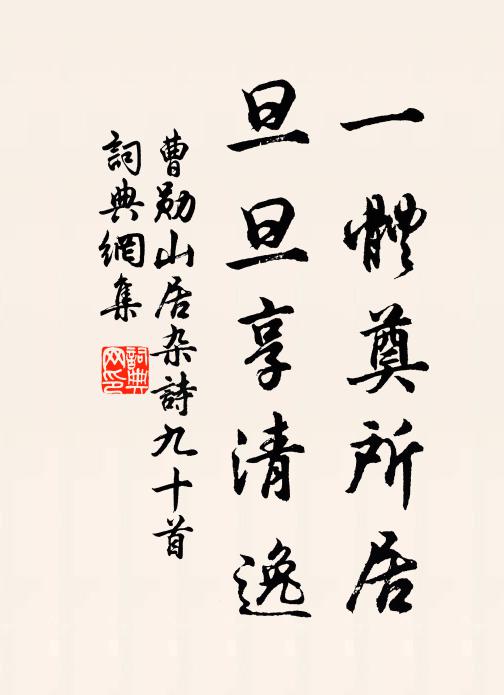 一體奠所居
旦旦享清逸
曹勛山居杂詩九十首
詞典網集
詞典網印